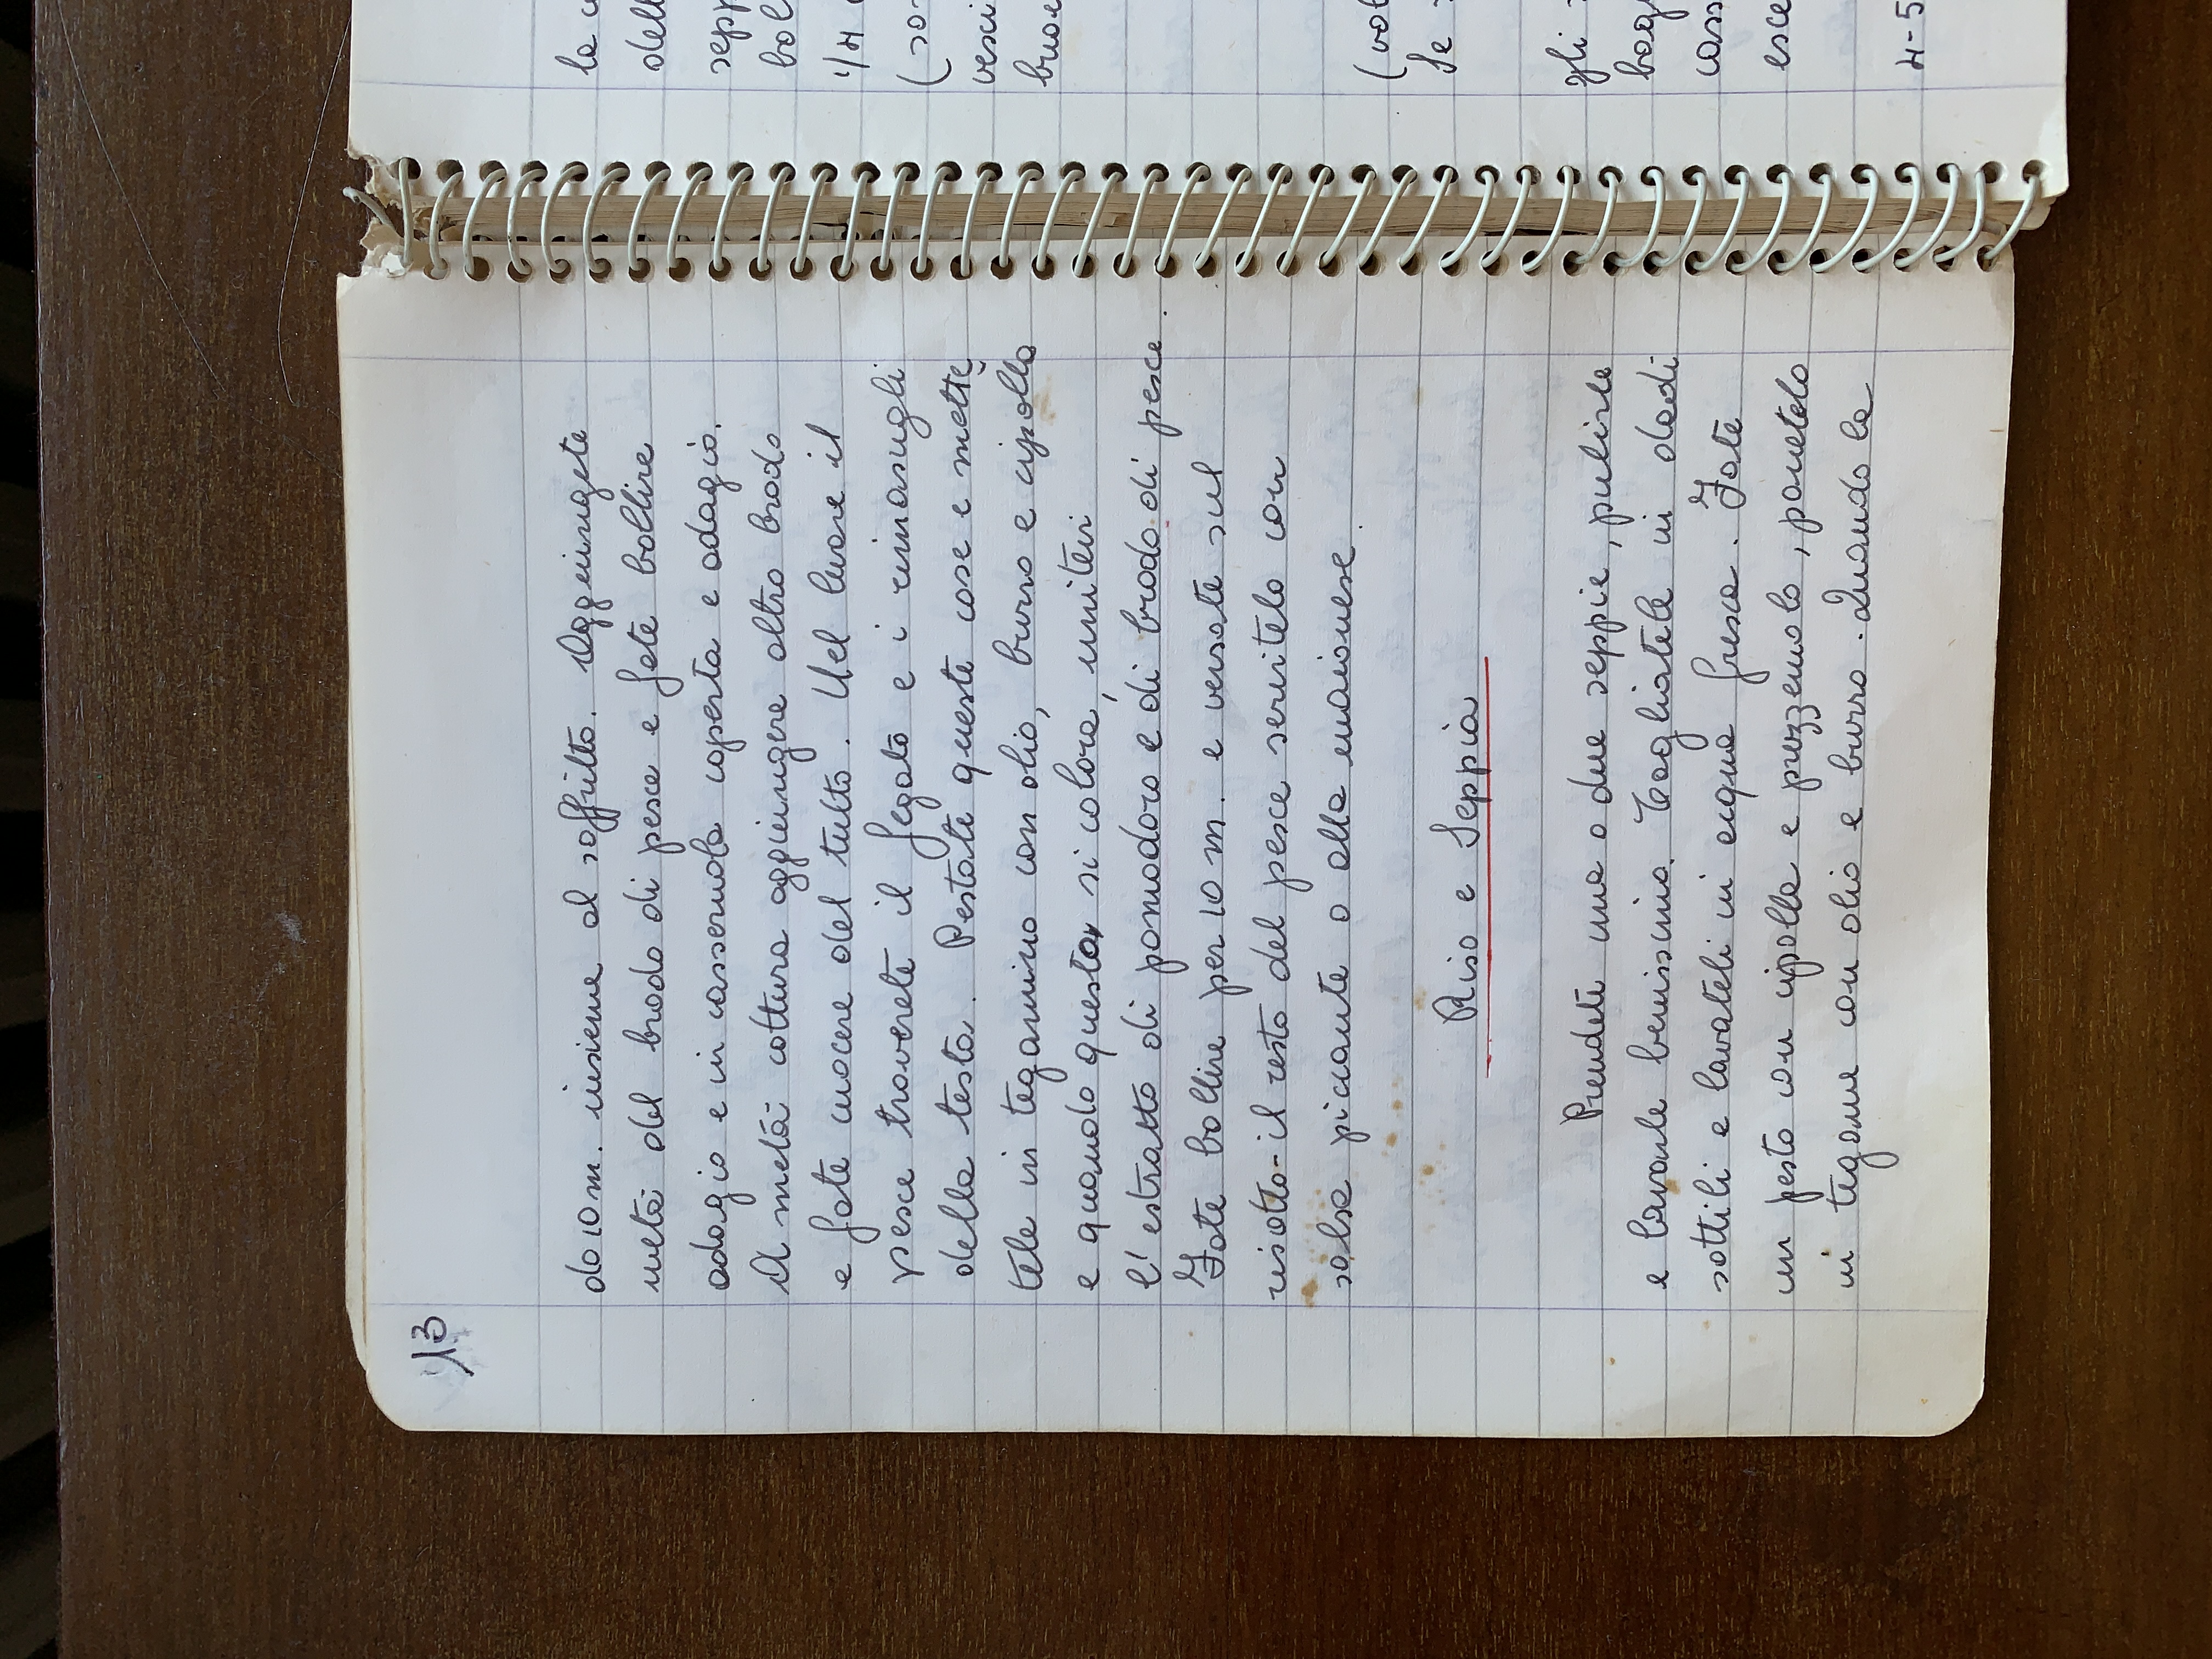 13
do 10 m. insieme al soffritto. Aggiungete
metà del brodo di pesce e fate bollire
adagio e in casseruola coperta e adagio.
A metà cottura aggiungere altro brodo
e fate cuocere del tutto. Nel levare il
pesce troverete il fegato e i rimasugli
della testa. Pestate queste cose e mette
tele in tegamino con olio, burro e cipolla
e quando questa si colora, unitevi
l'estratto di pomodoro e di brodo di pesce.
Fate bollire per 10 m. e versate sul
risotto - il resto del pesce servitelo con
salsa piccante o alla maionese.
Riso e Seppia
Prendete una o due seppie, pulirle
e lavarle benissimo. Tagliatele in dadi
sottili e lavateli in acqua fresca. Fate
un pesto con cipolla e prezzemolo, ponetelo
in tegame con olio e burro. Quando la
la
dell
sepp
bol
1/4
(so
vesci
(vol
Se
gli
cass
4-5